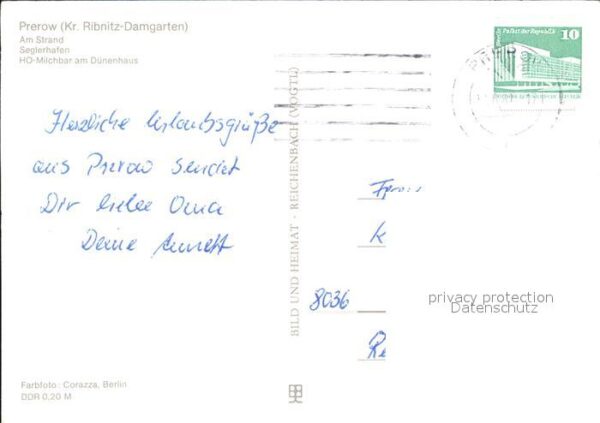 Prerow (Kr. Ribnitz-Damgarten)
Am Strand
Seglerhafen
HO-Milchbar am Dünenhaus
Palast der Republik
10
PREROW
Herzliche Urlaubsgrüße
aus Prerow sendet
Dir liebe Oma
Deine Annett
BILD UND HEIMAT · REICHENBACH (VOGTL)
K
8036
privacy protection
Datenschutz
Re
Farbfoto: Corazza, Berlin
DDR 0,20 M